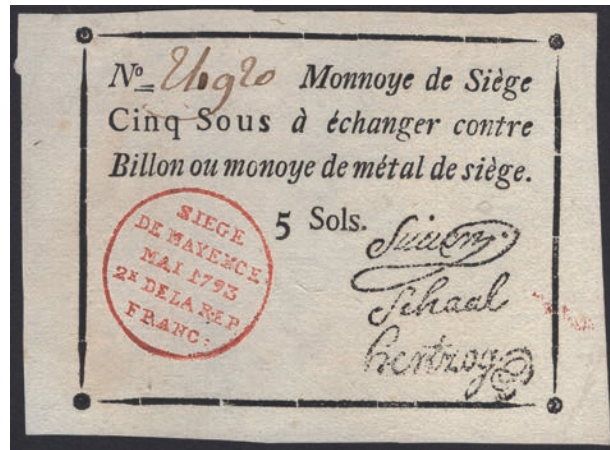 Nº Monnoye de Siège
Cinq Sous à échanger contre
Billon ou monoye de métal de siège.
5 Sols.
SIEGE
DE MAYENCE
MAI 1793
2E DE LA REP.
FRANC:
Schaal
hertzog